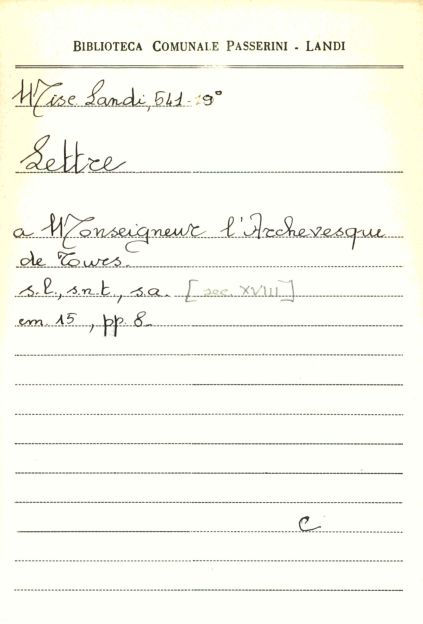 BIBLIOTECA COMUNALE PASSERINI - LANDI
Misc Landi, 541-19°
Lettre
a Monseigneur l'Archevesque
de Tours.
s.l., s.n.t., s.a. [sec. XVIII]
cm. 15, pp. 8
C